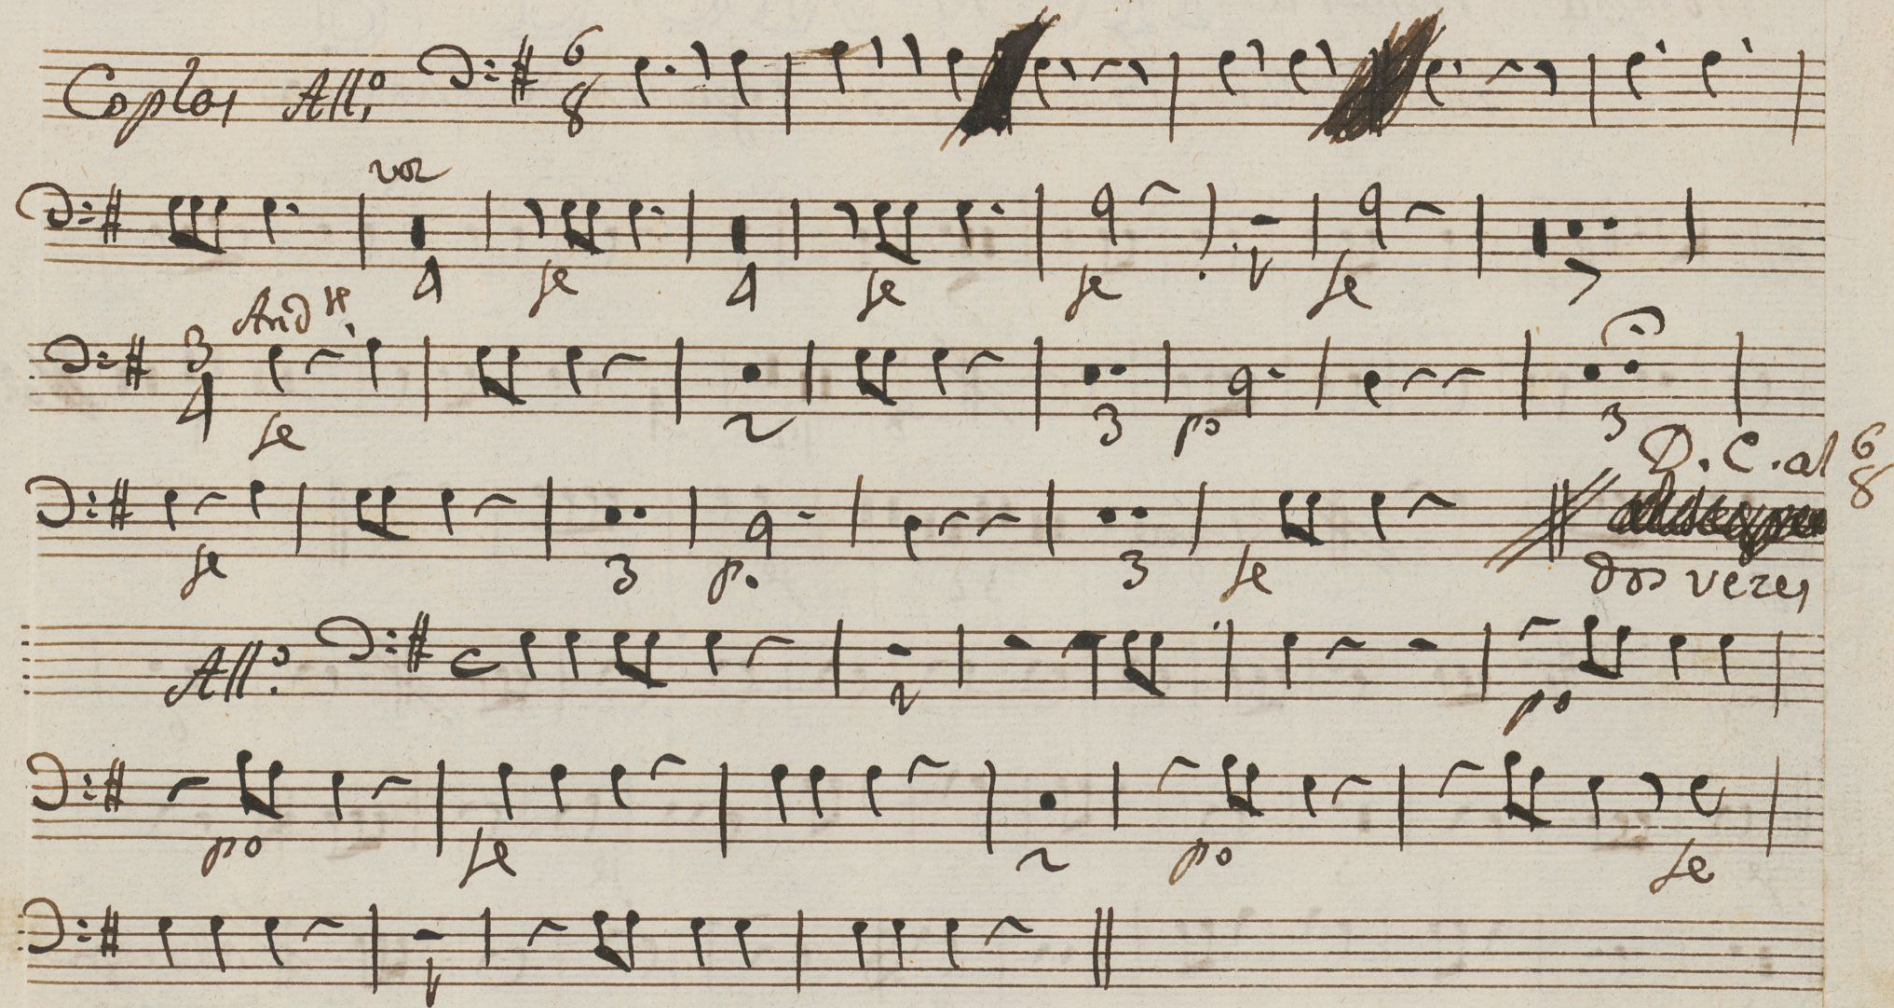 Coplas All.º 6 8
voz
4 fe 4 fe fe 1 fe 7
And.te
3 4 fe 2 3 po 3
D. C. al 6 8
fe 3 p.º 3 fe dos vezes
All.º C 2 po
po fe 2 po fe
1